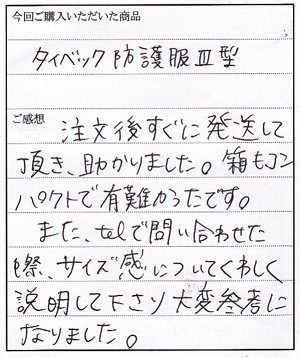 今回ご購入いただいた商品
タイベック防護服Ⅲ型
ご感想
注文後すぐに発送して
頂き、助かりました。箱もコン
パクトで有難かったです。
また、telで問い合わせた
際、サイズ感についてくわしく
説明して下さり大変参考に
なりました。